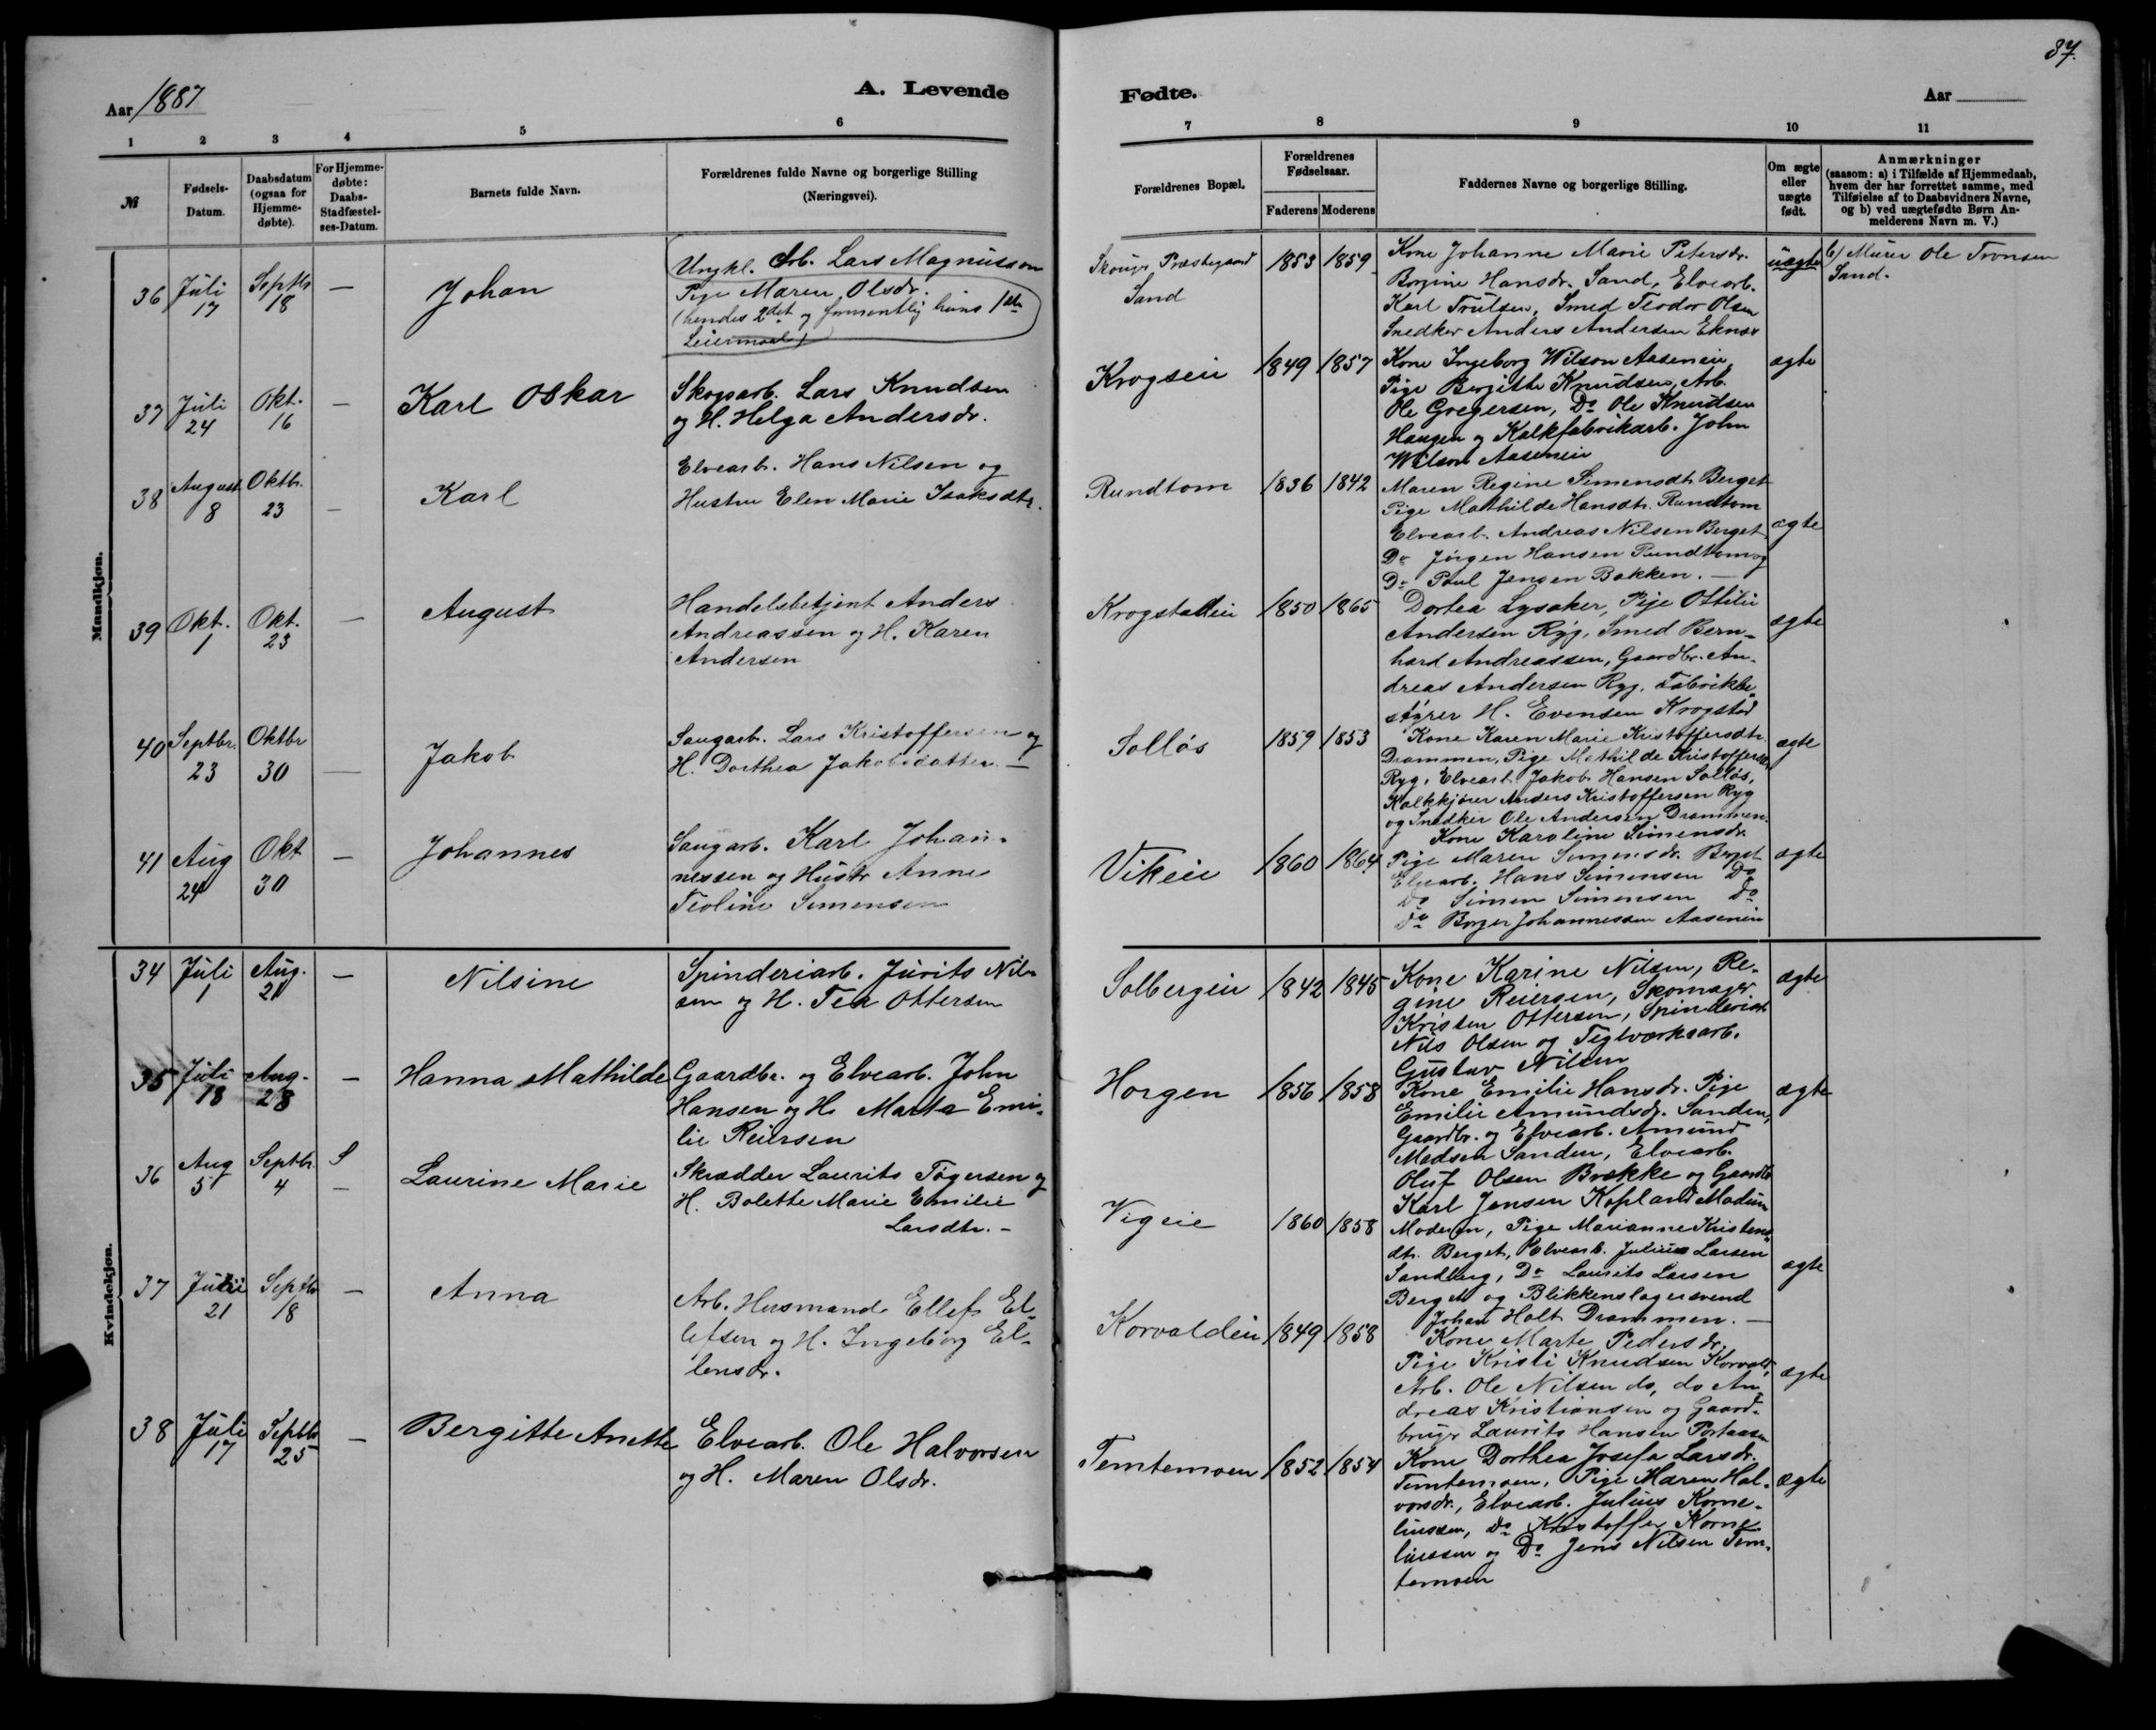 87.
Aar 1887
A. Levende
Fødte.
Aar
1 2 3 4 5 6 7 8 9 10 11
№
Fødsels-
Datum.
Daabsdatum
(ogsaa for
Hjemme-
døbte).
For Hjemme-
døbte:
Daabs-
Stadfæstel-
ses-Datum.
Barnets fulde Navn.
Forældrenes fulde Navne og borgerlige Stilling
(Næringsvei).
Forældrenes Bopæl.
Forældrenes
Fødselsaar.
Faderens Moderens
Faddernes Navne og borgerlige Stilling.
Om ægte
eller
uægte
født.
Anmærkninger
(saasom: a) i Tilfælde af Hjemmedaab,
hvem der har forrettet samme, med
Tilføielse af to Daabsvidners Navne,
og b) ved uægtefødte Børn An-
melderens Navn m. V.)
Mandkjøn.
36 Juli 17 Septbr 18 — Johan
Ungkl. Arb. Lars Magnusson
Pige Maren Olsdr.
(hendes 2det og formentlig hans 1ste
Leiermaal)
Skouger Præstegaard
Sand
1853 1859
Kone Johanne Marie Petersdr.
Borgine Hansdr. Sand, Elvearb.
Karl Trulsen, Smed Teodor Olsen
Snedker Anders Andersen Eknes
uægte
b) Murer Ole Tronsen
Sand.
37 Juli 24 Okt. 16 — Karl Oskar
Skogsarb. Lars Knudsen
og H. Helga Andersdr.
Krogseie 1849 1857
Kone Ingeborg Wilson Aaseneie,
Pige Bergitte Knudsen, Arb.
Ole Gregersen, Do Ole Knudsen
Haugen og Kalkfabrikarb. John
Wilson Aaseneie
ægte
38 August 8 Oktbr. 23 — Karl
Elvearb. Hans Nilsen og
Hustru Elen Marie Isaksdtr.
Rundtom 1836 1842
Maren Regine Simensdtr. Berget
Pige Mathilde Hansdtr. Rundtom
Elvearb. Andreas Nilsen Berget
Do Jørgen Hansen Rundtom og
Do Paul Jensen Bakken. —
ægte
39 Okt. 1 Okt. 23 — August
Handelsbetjent Anders
Andreassen og H. Karen
Andersen
Krogstadeie 1850 1865
Dortea Lysaker, Pige Ottilie
Andersen Ryg, Smed Bern-
hard Andreassen, Gaardbr. An-
dreas Andersen Ryg, Fabrikbe-
styrer H. Evensen Krogstad
ægte
40 Septbr. 23 Oktbr 30 — Jakob
Saugarb. Lars Kristoffersen og
H. Dorthea Jakobsdatter. —
Solløs 1859 1853
Kone Karen Marie Kristoffersdtr.
Drammen, Pige Mathilde Kristoffersdtr.
Ryg, Elvearb. Jakob Hansen Solløs,
Kalkkjører Anders Kristoffersen Ryg
og Snedker Ole Andersen Drammen.
ægte
41 Aug 24 Okt 30 — Johannes
Saugarb. Karl Johan-
nessen og Hustr Anne
Teoline Simensen
Vikeie 1860 1864
Kone Karoline Simensdr.
Pige Maren Simensdr. Berget
Elvearb. Hans Simensen Do
Do Simen Simensen Do
Do Borger Johannessen Aaseneie
ægte
Kvindekjøn.
34 Juli 1 Aug. 21 — Nilsine
Spinderiarb. Jurits Nil-
sen og H. Tea Ottersen
Solbergeie 1842 1845
Kone Karine Nilsen, Re-
gine Reiersen, Skomager
Kristen Ottersen, Spinderiarb.
Nils Olsen og Teglværksarb.
Gustav Nilsen
ægte
35 Juli 18 Aug. 28 — Hanna Mathilde
Gaardbr. og Elvearb. John
Hansen og H. Marta Emi-
lie Reiersen
Horgen 1856 1858
Kone Emilie Hansdr. Pige
Emilie Amundsdr. Sanden,
Gaardbr. og Elvearb. Amund
Madsen Sanden, Elvearb.
Oluf Olsen Brække og Gaardbr.
Karl Jensen Kopland Modum
ægte
36 Aug 5 Septbr. 4 S — Laurine Marie
Skrædder Laurits Tøgersen og
H. Bolette Marie Emilie
Larsdtr. —
Vigeie 1860 1858
Moderen, Pige Marianne Kristens-
dtr. Berget, Elvearb. Julius Larsen
Sandberg, Do Laurits Larsen
Berget og Blikkenslagersvend
Johan Holt Drammen. —
ægte
37 Juli 21 Septbr 18 — Anna
Arb. Husmand Ellef El-
lefsen og H. Ingeborg El-
lensdr.
Korvaldeie 1849 1858
Kone Marte Pedersdr.
Pige Kristi Knudsen Korvald,
Arb. Ole Nilsen do, do An-
dreas Kristiansen og Gaard-
bruger Laurits Hansen Portaasen
ægte
38 Juli 17 Septbr 25 — Bergitte Anette
Elvearb. Ole Halvorsen
og H. Maren Olsdr.
Temtemoen 1852 1854
Kone Dorthea Josefa Larsdr.
Temtemoen, Pige Maren Hal-
vorsdr., Elvearb. Julius Korne-
liussen, Do Kristoffer Korne-
liussen og Do Jens Nilsen Tem-
temoen
ægte